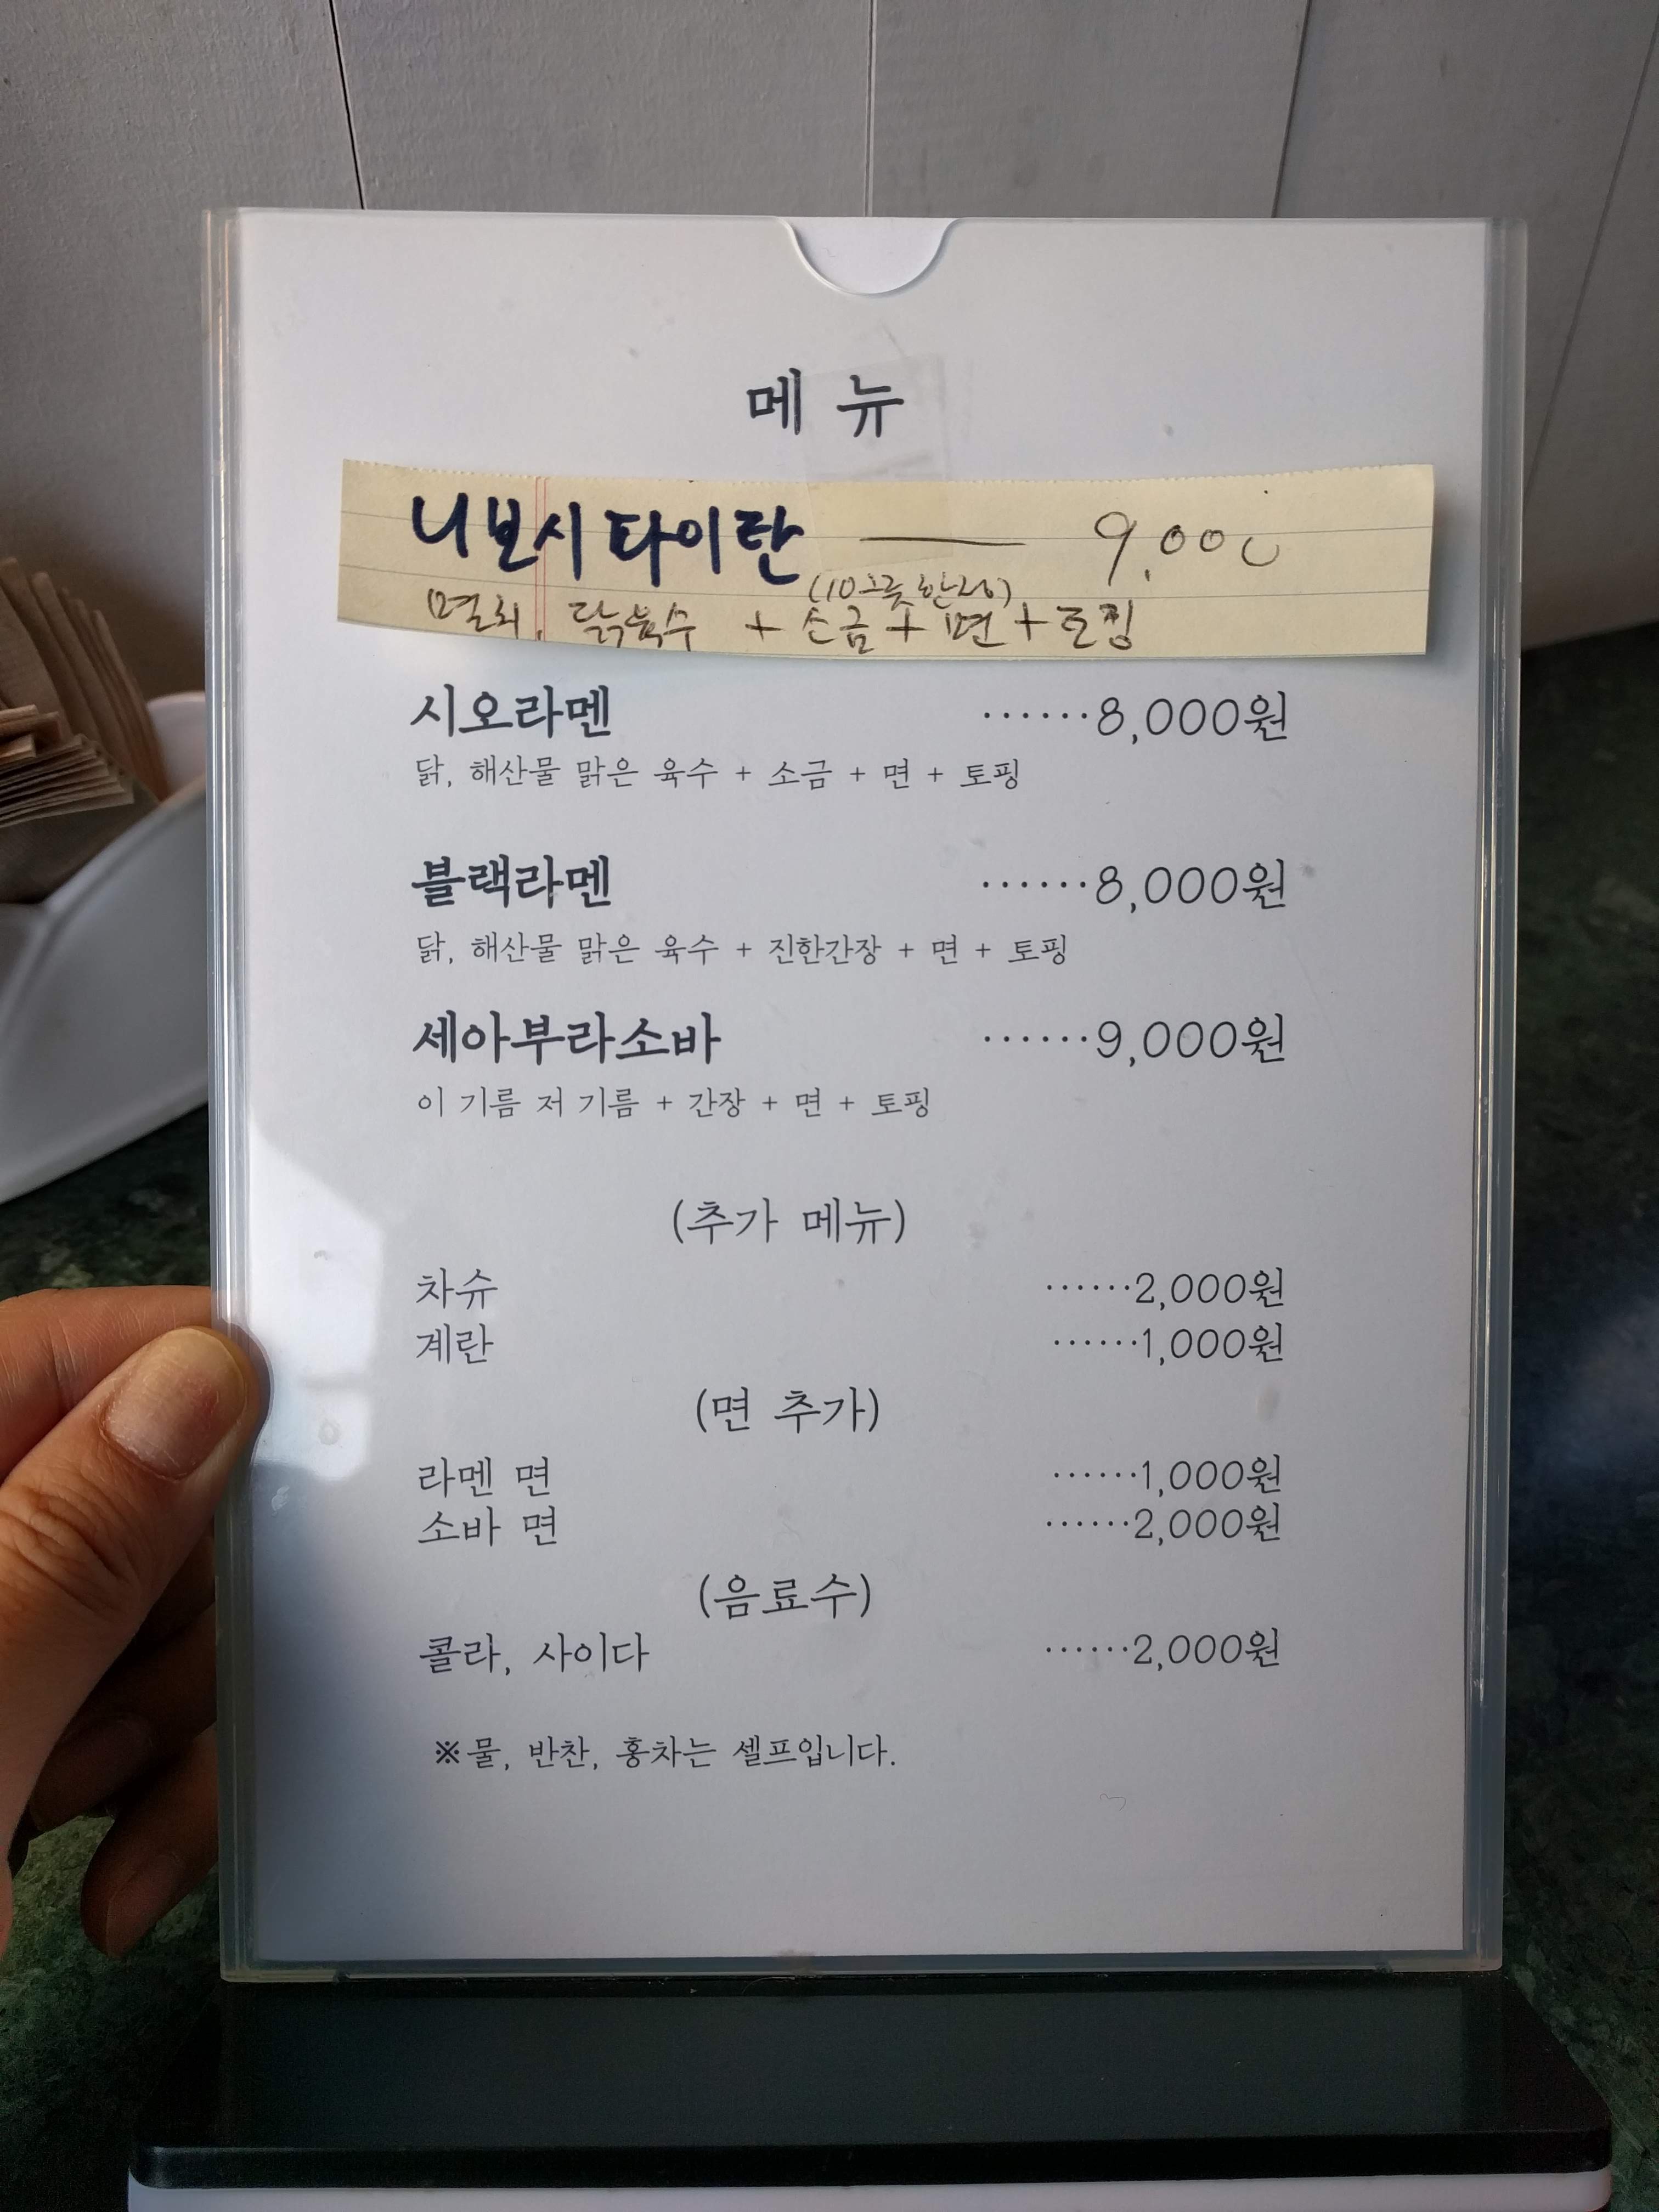 메 뉴
니보시 타이탄 ——— 9,000
(10그릇 한정)
멸치, 닭육수 + 소금 + 면 + 토핑
시오라멘 ······8,000원
닭, 해산물 맑은 육수 + 소금 + 면 + 토핑
블랙라멘 ······8,000원
닭, 해산물 맑은 육수 + 진한간장 + 면 + 토핑
세아부라소바 ······9,000원
이 기름 저 기름 + 간장 + 면 + 토핑
(추가 메뉴)
차슈 ······2,000원
계란 ······1,000원
(면 추가)
라멘 면 ······1,000원
소바 면 ······2,000원
(음료수)
콜라, 사이다 ······2,000원
※물, 반찬, 홍차는 셀프입니다.